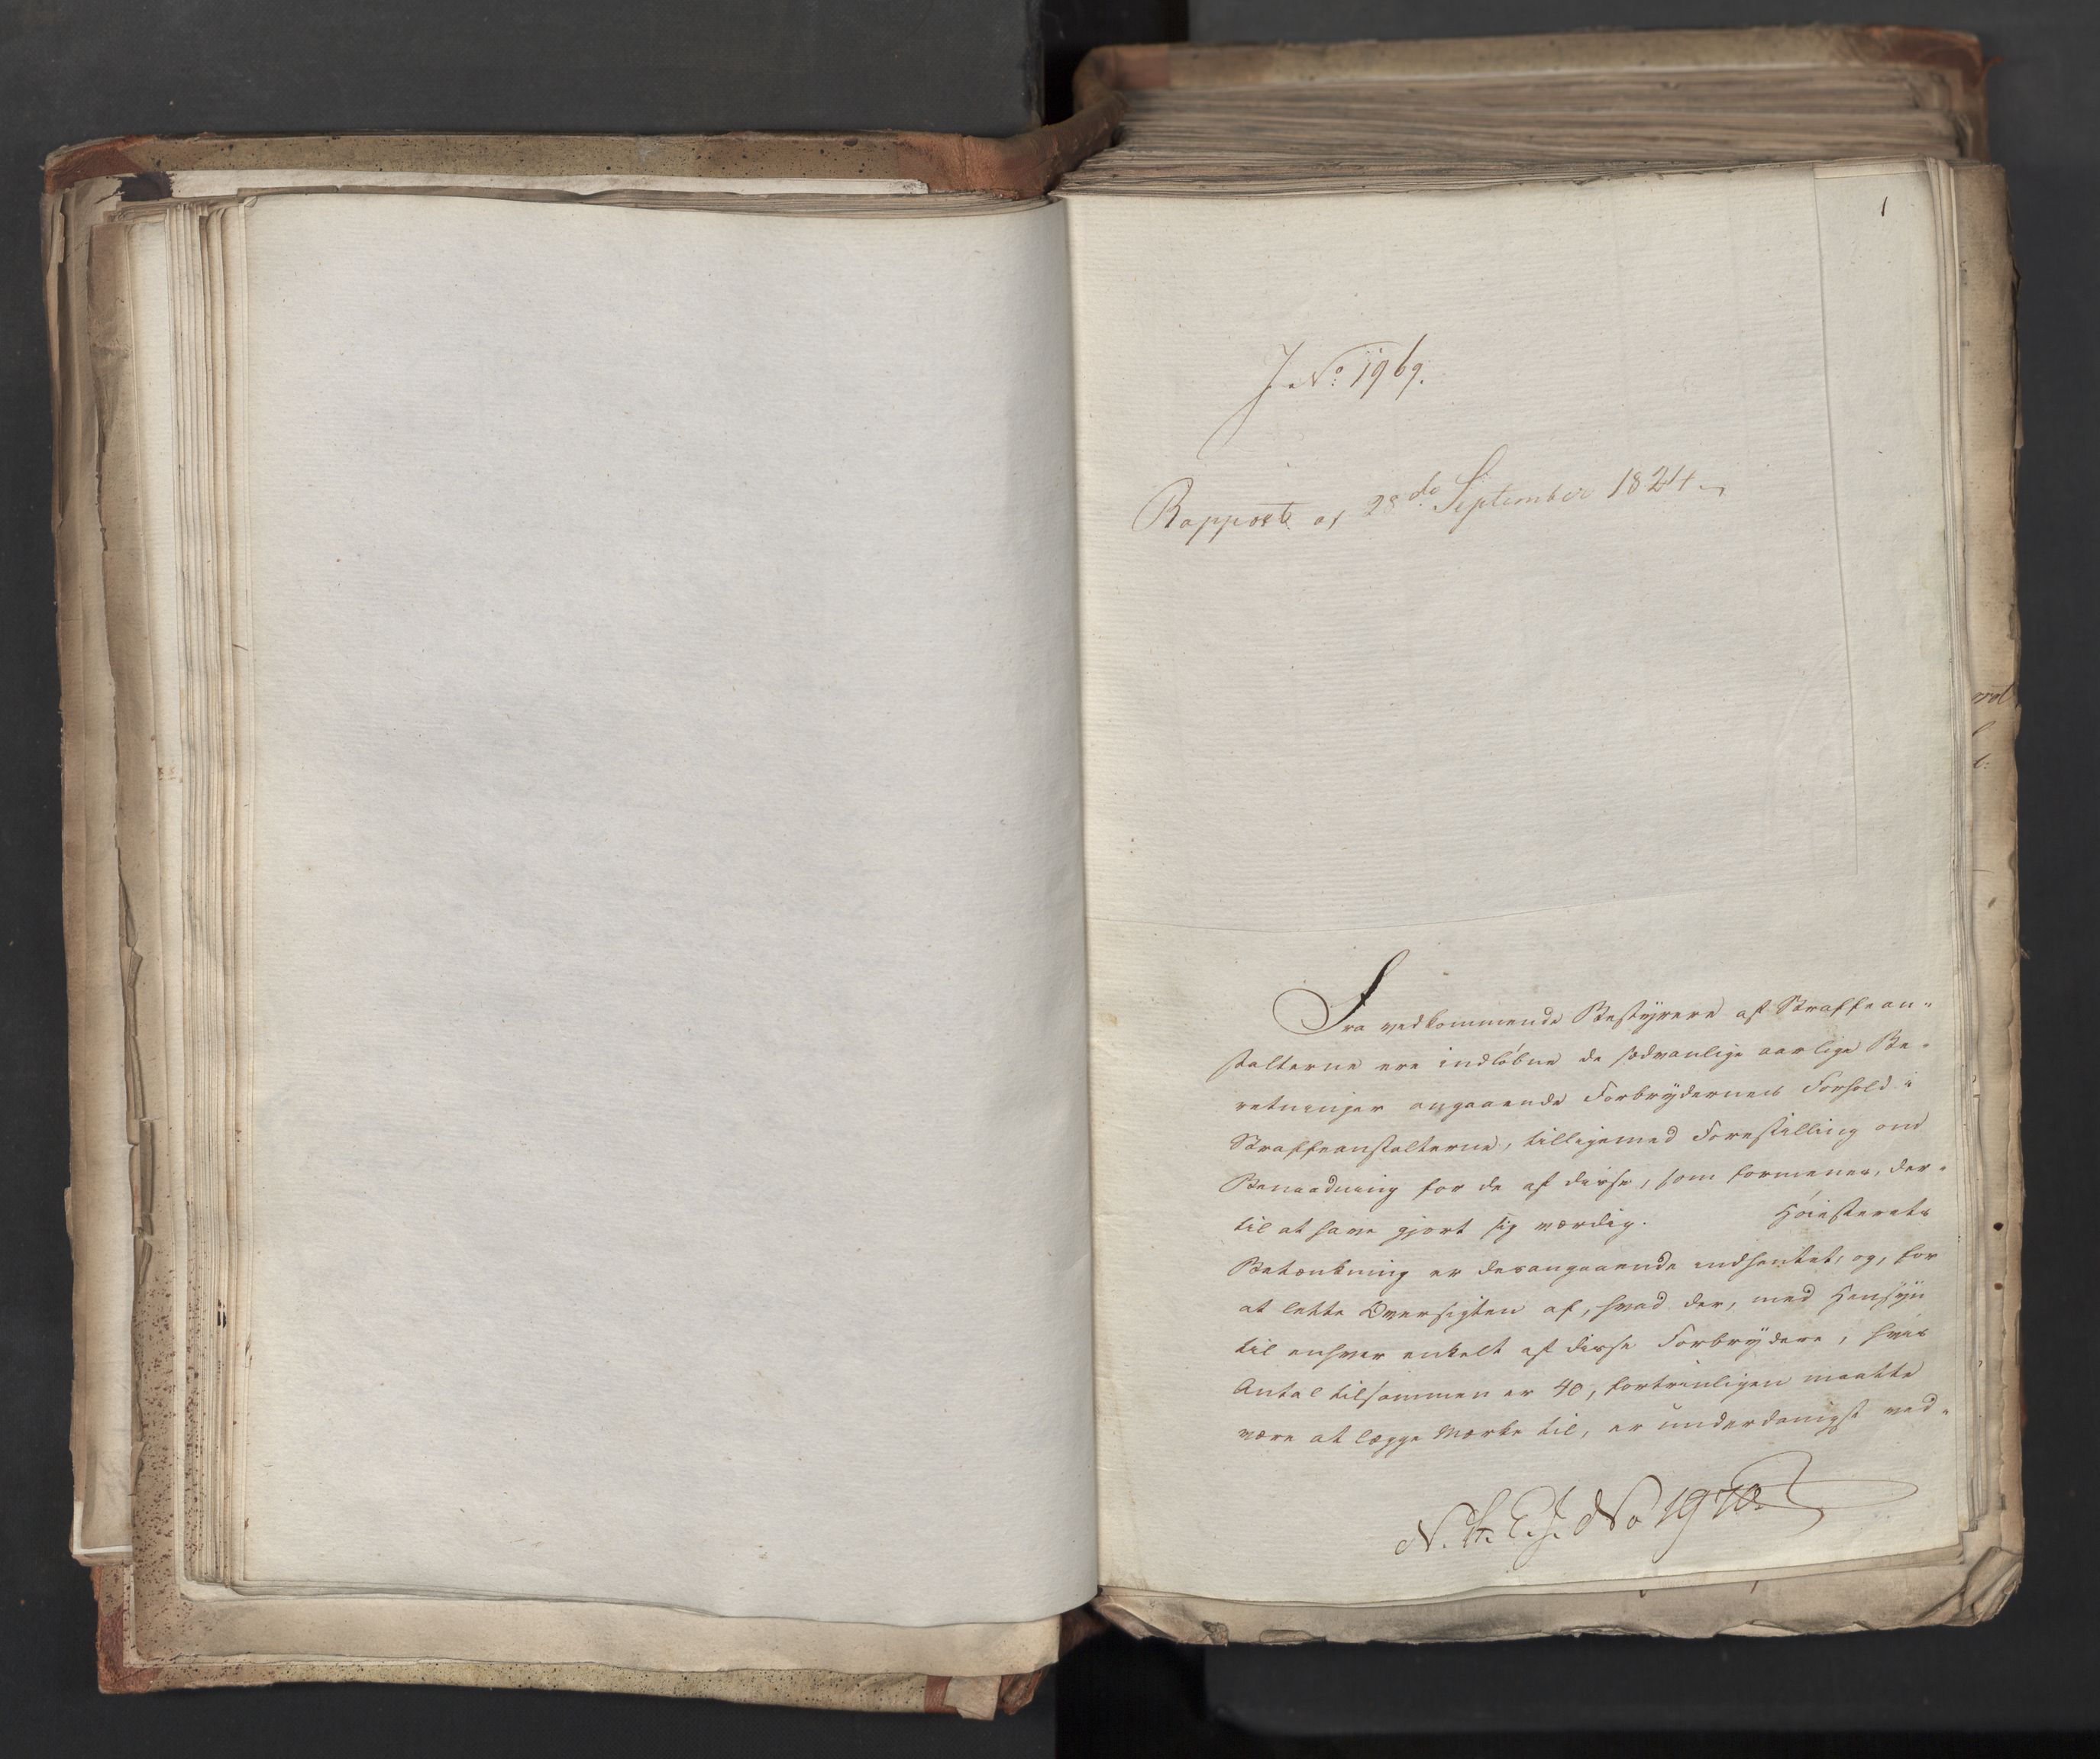 1
J. No. 1969.
Rapport af 28de September 1824
Fra vedkommende Bestÿrere af Straffean-
stalterne ere indløbne de sædvanlige aarlige Be-
retninger angaaende Forbrÿdernes Forhold i
Straffeanstalterne, tilligemed Forestilling om
Benaadning for de af disse, som formenes, der-
til at have gjort sig værdig. Høiesterets
Betænkning er desangaaende indhentet, og, for
at lette Oversigten af, hvad der, med Hensÿn
til enhver enkelt af disse Forbrÿdere, hvis
Antal tilsammen er 40, fortrinligen maatte
være at lægge Mærke til, er underdanigst ved-
No 1970.